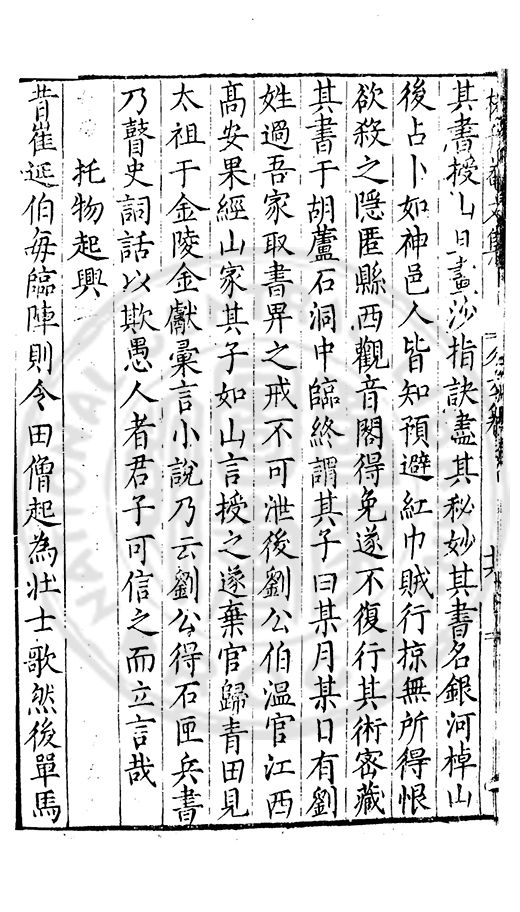 其書授以旦畫沙指訣盡其秘妙其書名銀河棹山
後占卜如神邑人皆知預避紅巾賊行掠無所得恨
欲殺之隱匿縣西觀音閣得免遂不復行其術密藏
其書于胡蘆石洞中臨終謂其子曰某月某日有劉
姓過吾家取書畀之戒不可泄後劉公伯溫官江西
高安果經山家其子如山言授之遂棄官歸青田見
太祖于金陵金獻彙言小說乃云劉公得石匣兵書
乃瞽史詞話以欺愚人者君子可信之而立言哉
托物起興
昔崔延伯每臨陣則令田僧起為壯士歌然後單馬